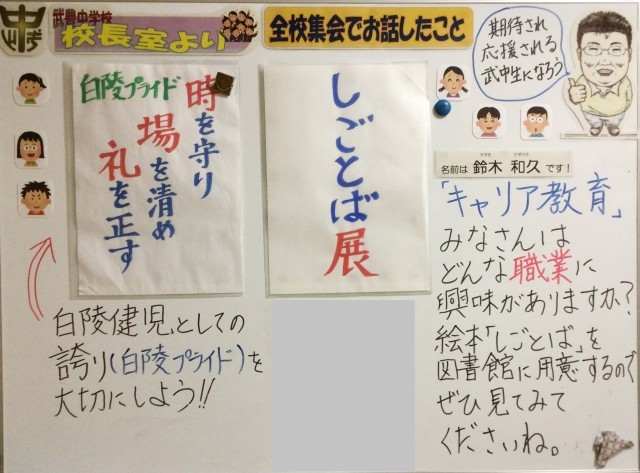 武豊中学校
校長室より
全校集会でお話したこと
期待され
応援される
武中生になろう
白陵プライド
時を守り
場を清め
礼を正す
しごとば展
名前は 鈴木 和久 です!
「キャリア教育」
みなさんは
どんな職業に
興味がありますか?
絵本「しごとば」を
図書館に用意するので
ぜひ見てみて
くださいね。
白陵健児としての
誇り(白陵プライド)を
大切にしよう!!